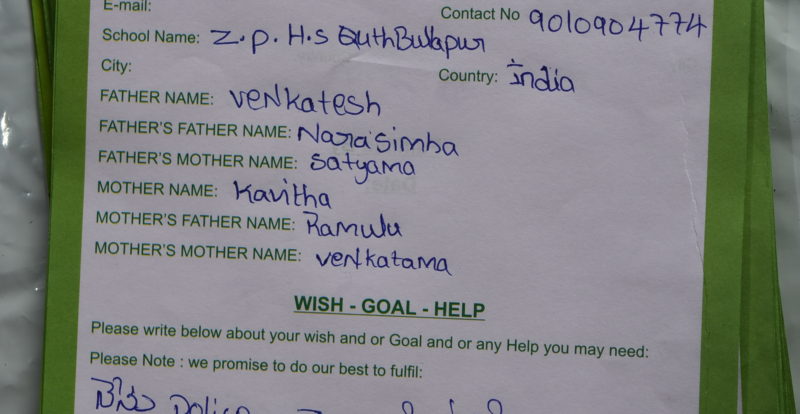 E-mail:
Contact No 9010904774
School Name: Z.P.H.S QuthBullapur
City:
Country: India
FATHER NAME: Venkatesh
FATHER'S FATHER NAME: Narasimha
FATHER'S MOTHER NAME: Satyama
MOTHER NAME: Kavitha
MOTHER'S FATHER NAME: Ramulu
MOTHER'S MOTHER NAME: Venkatama
WISH - GOAL - HELP
Please write below about your wish and or Goal and or any Help you may need:
Please Note : we promise to do our best to fulfil:
నేను police